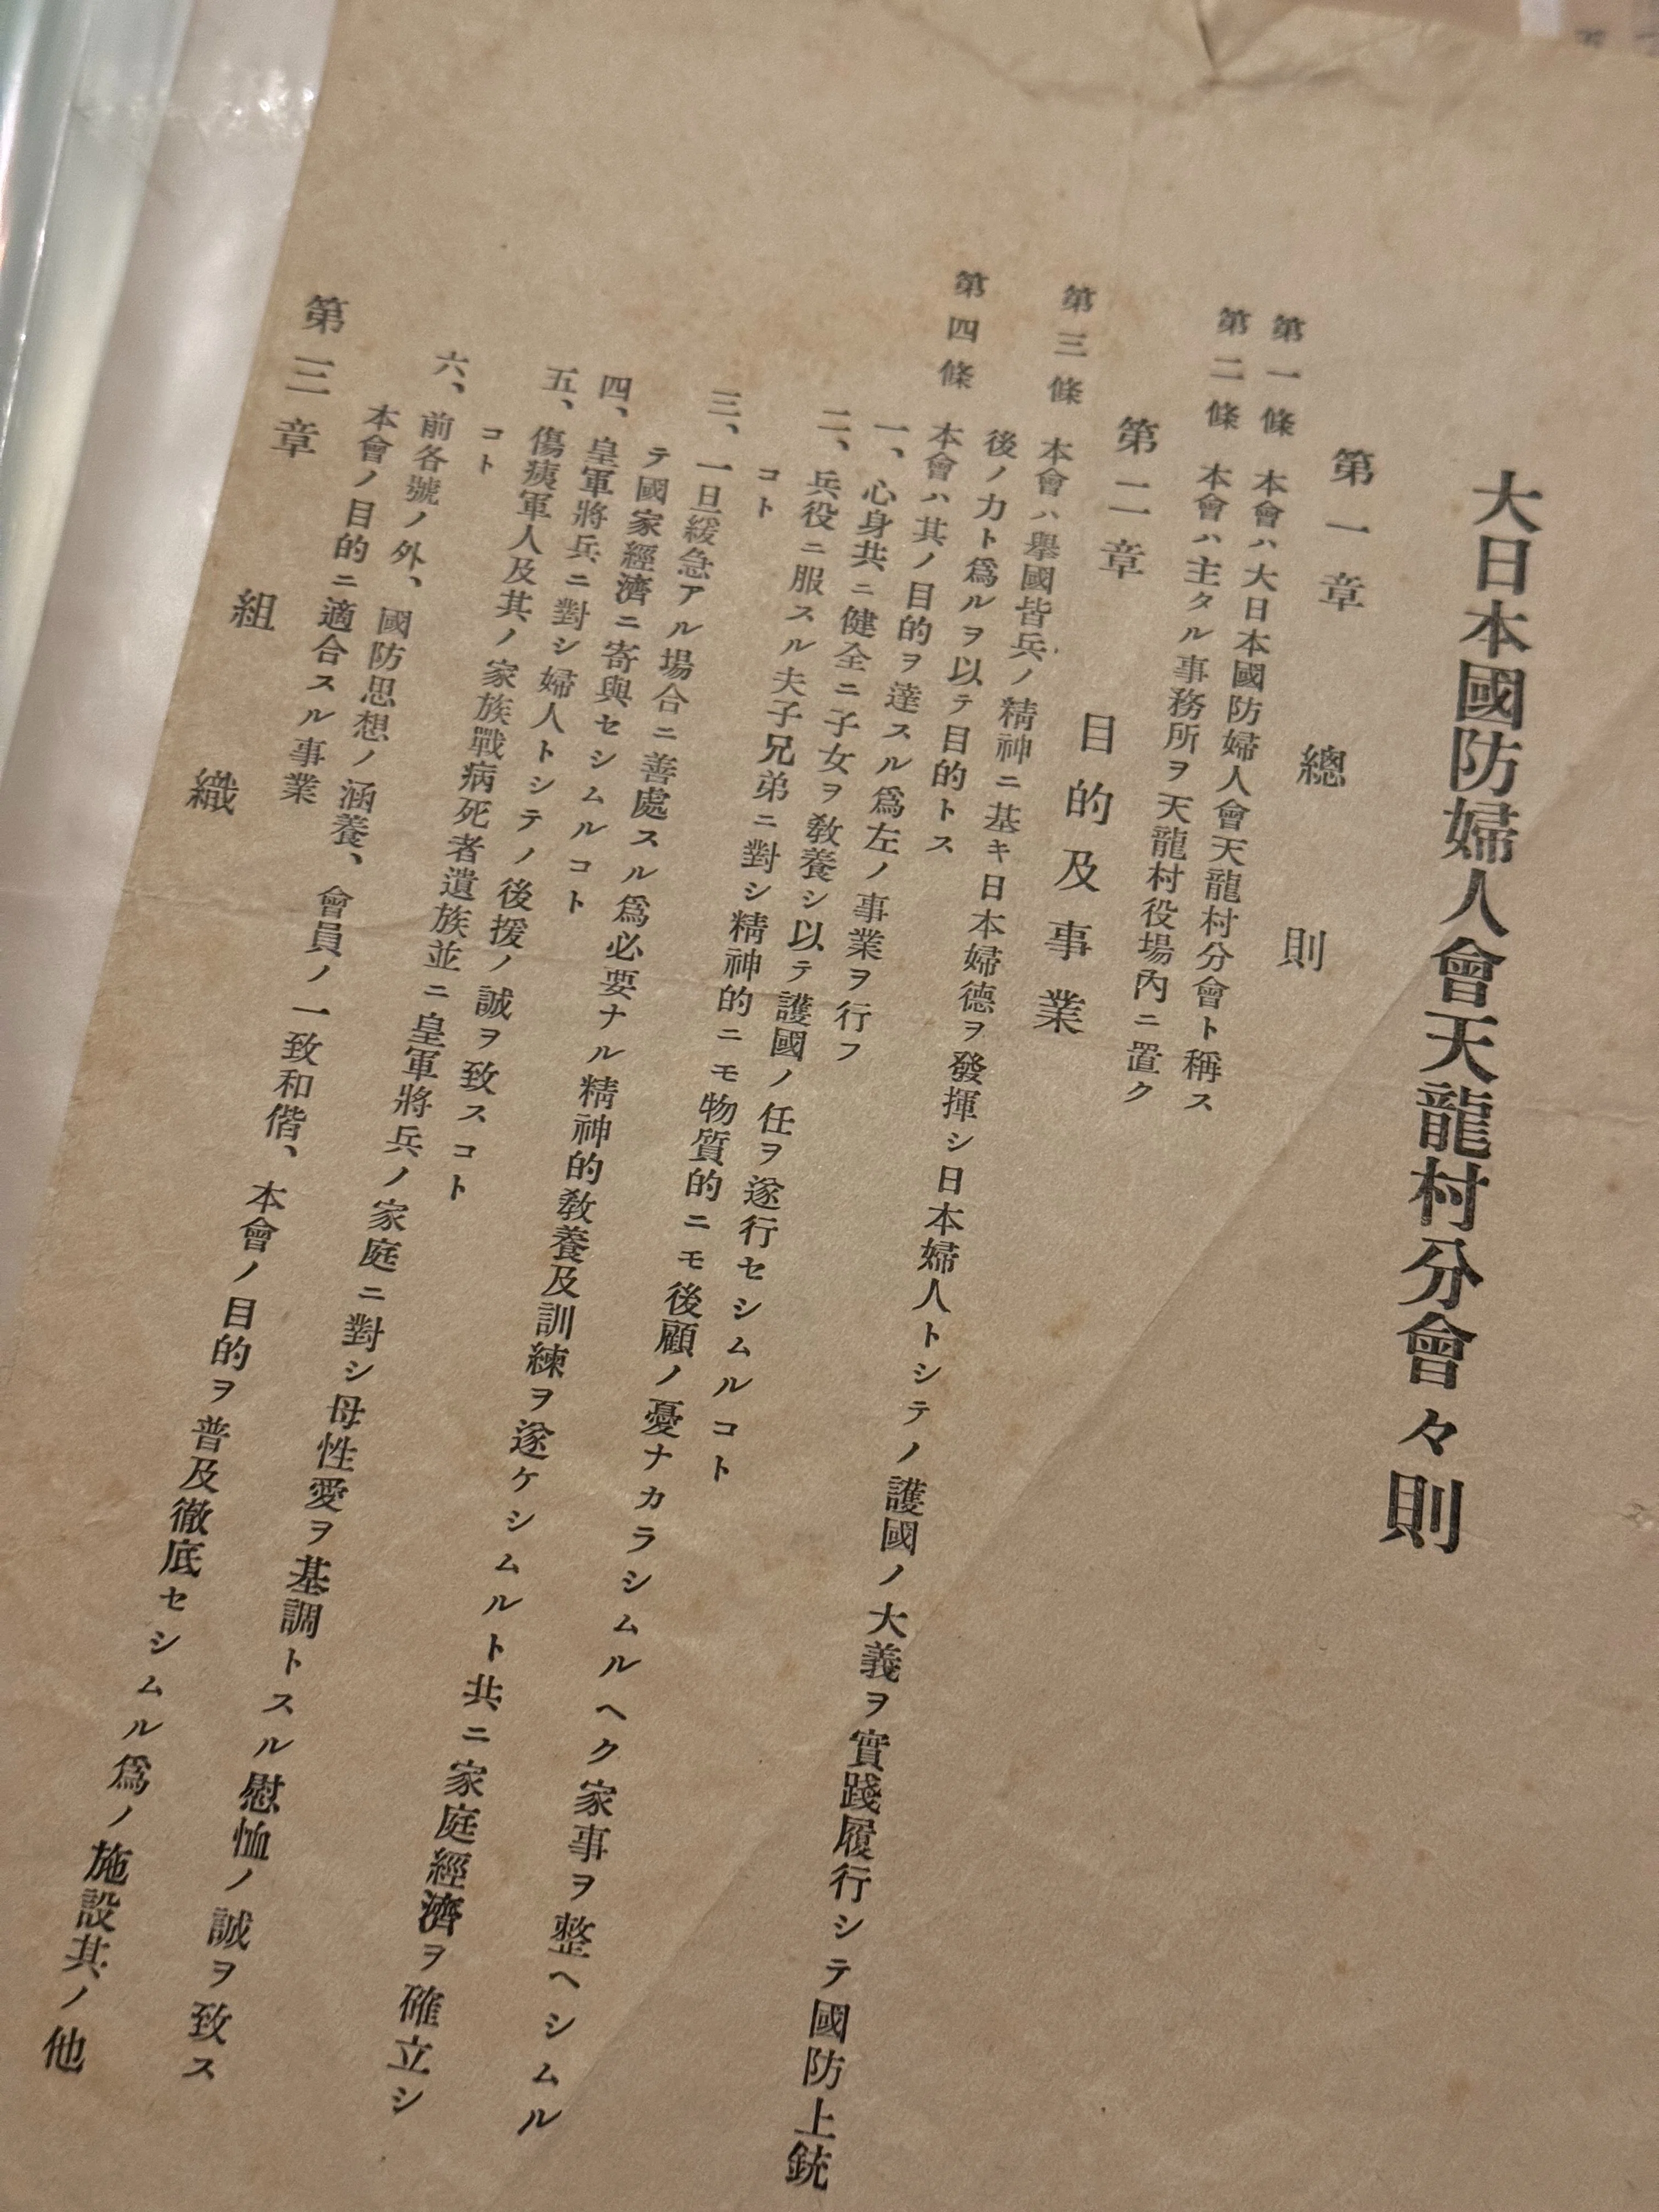 大日本國防婦人會天龍村分會々則
第一章　總則
第一條　本會ハ大日本國防婦人會天龍村分會ト稱ス
第二條　本會ハ主タル事務所ヲ天龍村役場內ニ置ク
第二章　目的及事業
第三條　本會ハ擧國皆兵ノ精神ニ基キ日本婦德ヲ發揮シ日本婦人トシテノ護國ノ大義ヲ實踐履行シテ國防上銃
後ノ力ト爲ルヲ以テ目的トス
第四條　本會ハ其ノ目的ヲ達スル爲左ノ事業ヲ行フ
一、心身共ニ健全ニ子女ヲ敎養シ以テ護國ノ任ヲ遂行セシムルコト
二、兵役ニ服スル夫子兄弟ニ對シ精神的ニモ物質的ニモ後顧ノ憂ナカラシムルヘク家事ヲ整ヘシムル
コト
三、一旦緩急アル場合ニ善處スル爲必要ナル精神的敎養及訓練ヲ遂ケシムルト共ニ家庭經濟ヲ確立シ
テ國家經濟ニ寄與セシムルコト
四、皇軍將兵ニ對シ婦人トシテノ後援ノ誠ヲ致スコト
五、傷痍軍人及其ノ家族戰病死者遺族並ニ皇軍將兵ノ家庭ニ對シ母性愛ヲ基調トスル慰恤ノ誠ヲ致ス
コト
六、前各號ノ外、國防思想ノ涵養、會員ノ一致和偕、本會ノ目的ヲ普及徹底セシムル爲ノ施設其ノ他
本會ノ目的ニ適合スル事業
第三章　組織